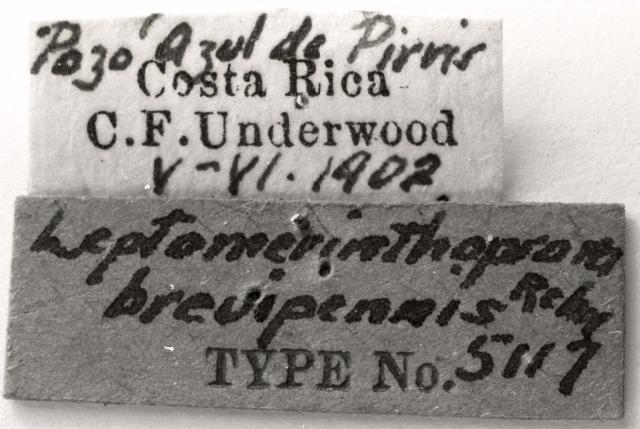 Pozo Azul de Pirris
Costa Rica
C.F.Underwood
V-VI.1902
Leptomerinthoprora
brevipennis Rehn
TYPE No. 5117